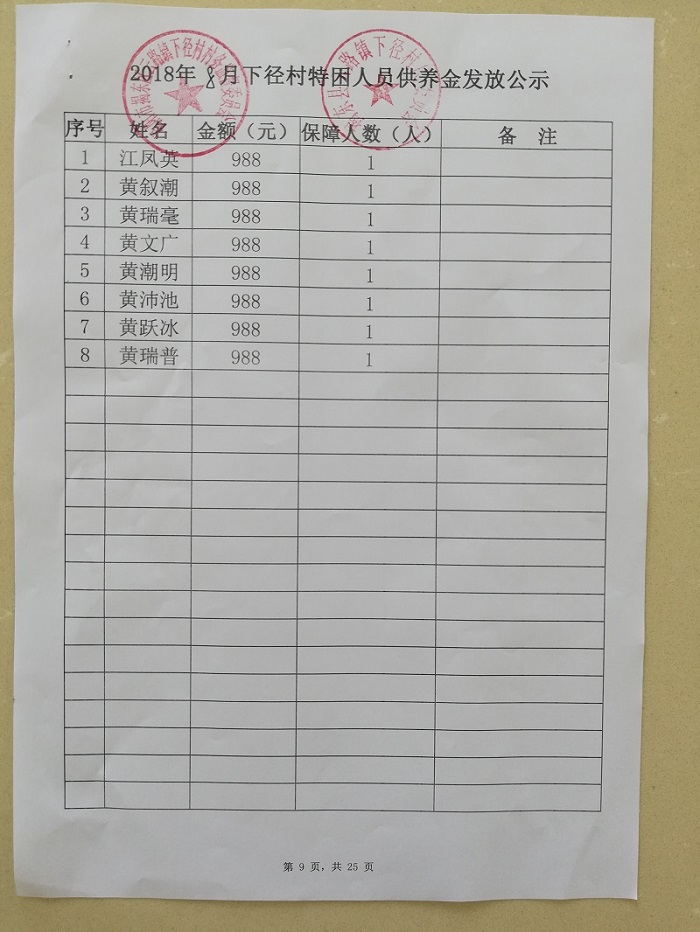 2018年 8月下径村特困人员供养金发放公示
序号 姓名 金额（元） 保障人数（人） 备 注
1 江凤英 988 1
2 黄叙潮 988 1
3 黄瑞毫 988 1
4 黄文广 988 1
5 黄潮明 988 1
6 黄沛池 988 1
7 黄跃冰 988 1
8 黄瑞普 988 1
第 9 页，共 25 页